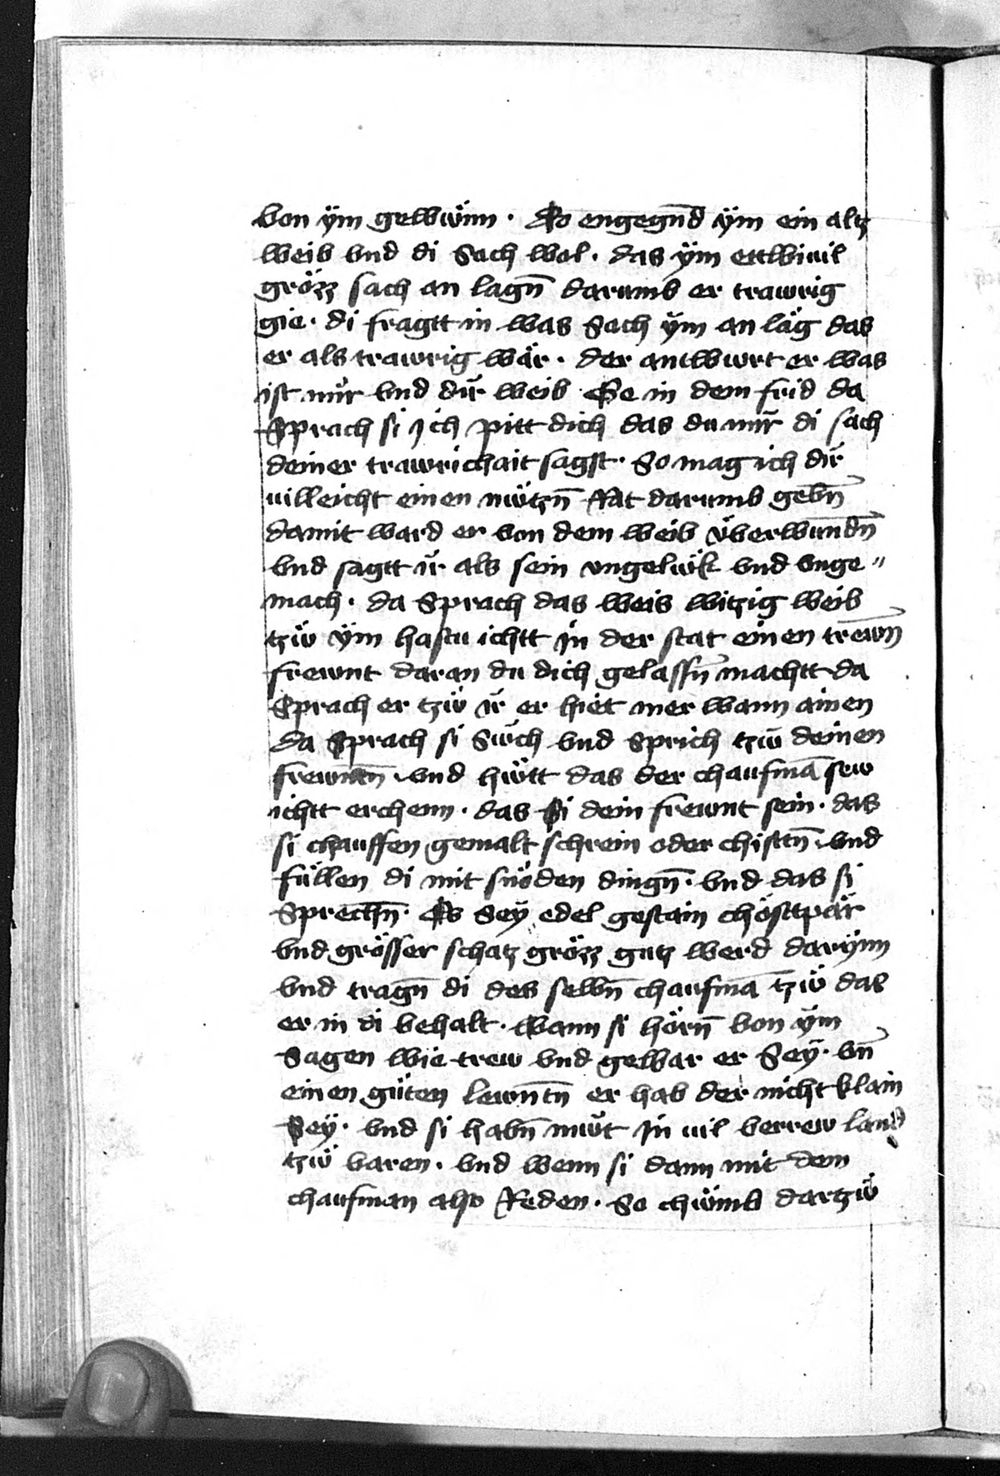 von ÿm gewẅnn · Do engegn̄d ÿm ein altz
weib vnd di sach wol · das ÿm ettwiuil
grözz sach an lagn̄ darumb er trawrig
gie · di fragtt in was sach ÿm an läg das
er als trawrig wär · der antwurt er was
ist mir vnd dir weib Ge in dem frid da
sprach si ich pitt dich das du mir di sach
deiner trawrichait sagst · So mag ich dir
uilleicht einen nẅtzn̄ Rat darumb gebn̄
damit ward er von dem weib v̈berwundn̄
vnd sagtt ir als sein vngelük vnd vnge〃
mach · da sprach das weib witzig weib
tzẅ ÿm hastu ichtt in der stat einen trewn̄
frewnt daran du dich gelassn̄ machtt da
sprach er tzẅ ir er hiet mer wann ainen
da sprach si Sẅch vnd sprich tzẅ deinen
frewntn̄ · vnd hẅtt das der chaufmā sew
ichtt erchenn · das si dein frewnt sein · das
si chauffen gemalt schrein oder chisttn̄ · vnd
füllen di mit snöden dingn̄ · vnd das si
sprechn̄ · Es seÿ edel gestain chösttpär
vnd grösser schatz grözz gutz werd darÿnn
vnd tragn̄ di des selbn̄ chaufmā tzẅ das
er in di behalt · Wann si hörn̄ von ÿm
sagen wie trew vnd gewar er seÿ · vn̄
einen güten lewntn̄ er hab der nicht klain
seÿ · vnd si habn̄ mẅt in uil verrew land
tzẅ varen · vnd wenn si dann mit dem
chaufman also Reden · So chẅmb dartzẅ